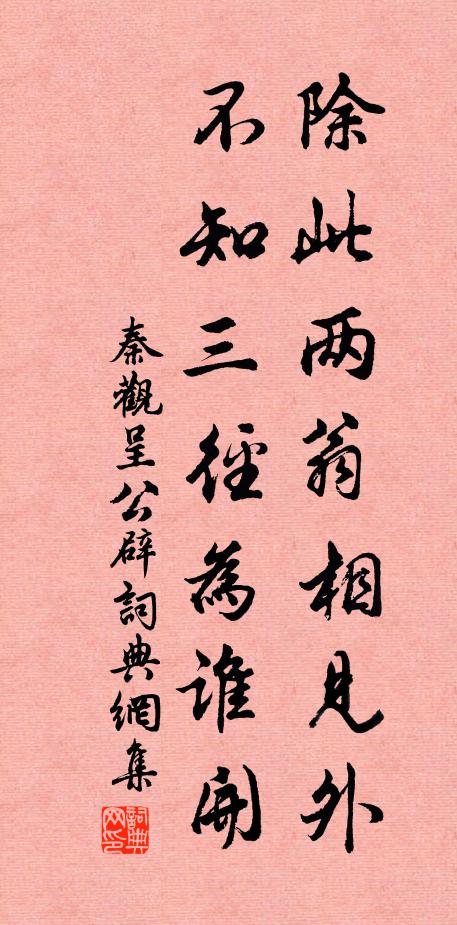 除此两翁相見外
不知三徑為誰開
秦觀呈公辟詞典網集
詞典网印